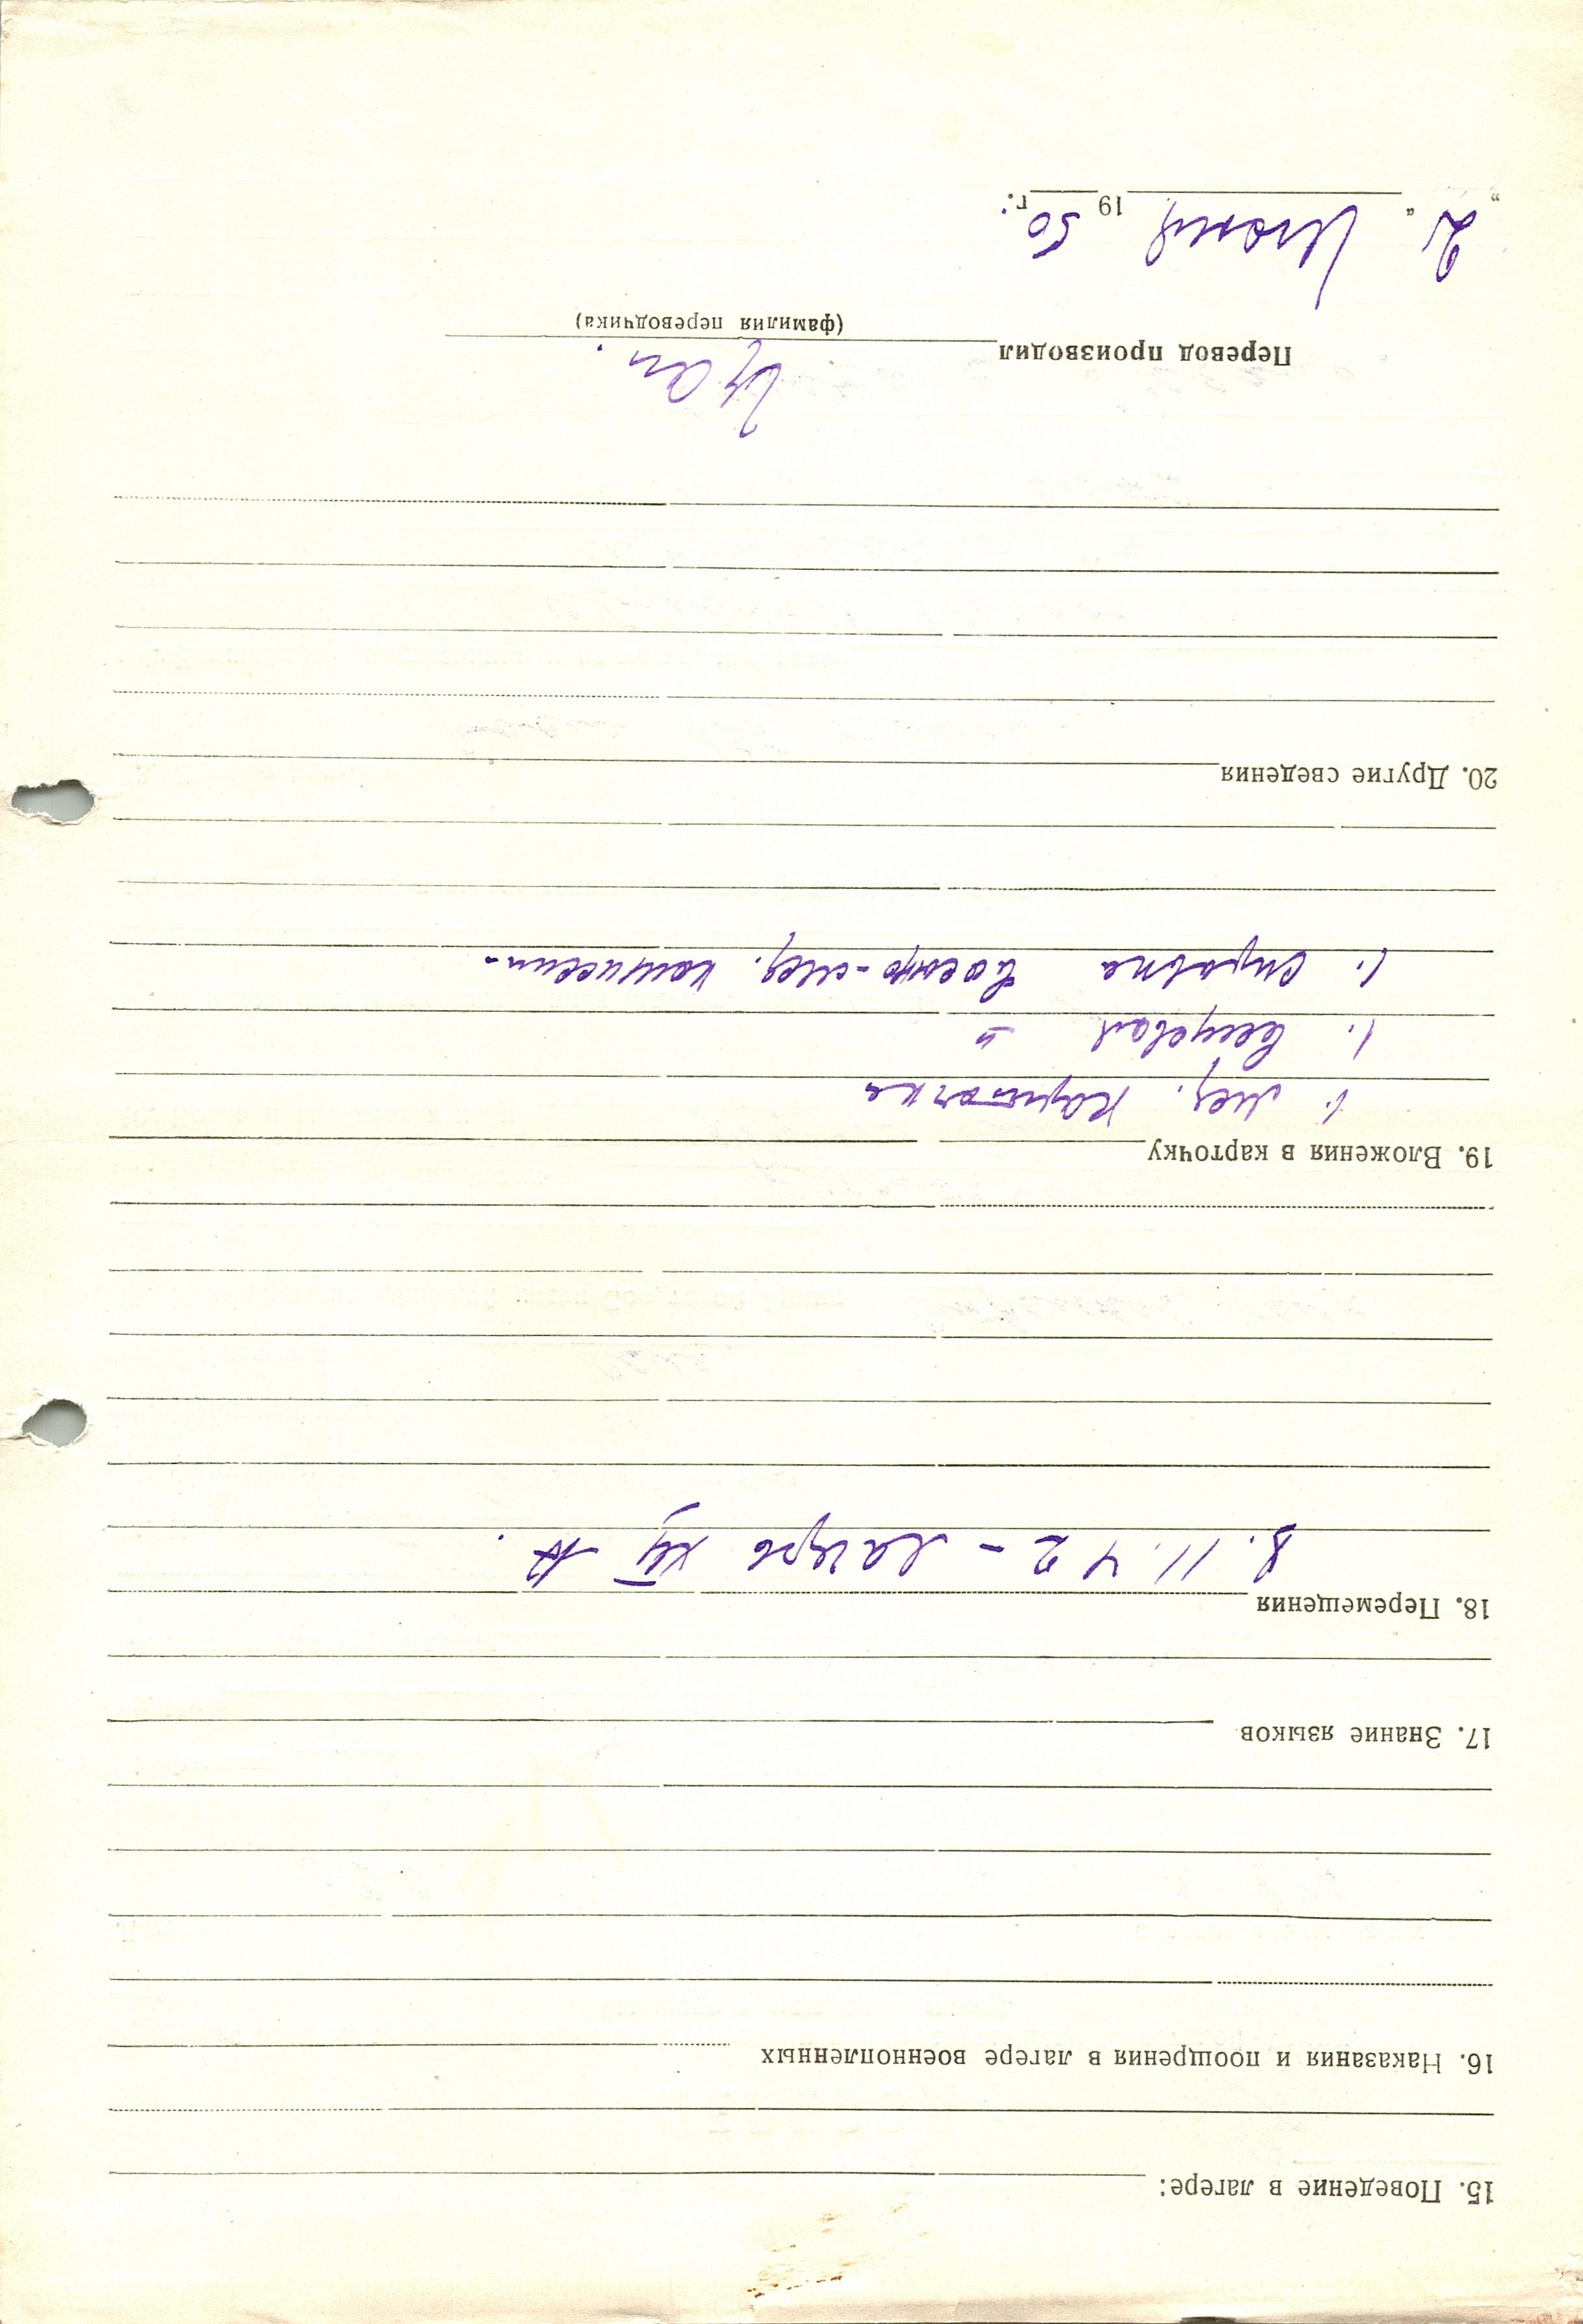 15. Поведение в лагере:
16. Наказания и поощрения в лагере военнопленных
17. Знание языков
18. Перемещения
8.11.42 – лагерь XIII А.
19. Вложения в карточку
1. Мед. карточка
1. "
1. Справка Военно-мед. комиссии.
20. Другие сведения
Перевод производил
(фамилия переводчика)
"2" Июня 1950 г.